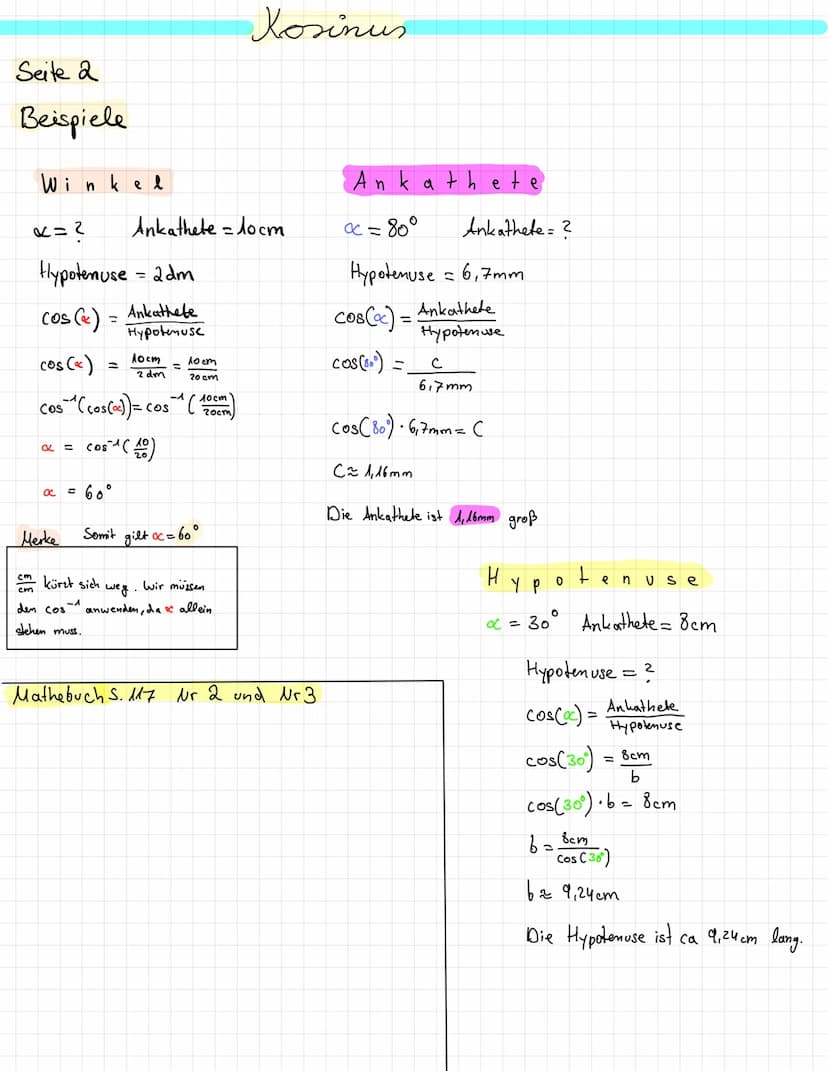 Kosinus
Seite 2
Beispiele
Winkel
α = ? Ankathete = 10cm
Hypotenuse = 2dm
cos(α) = Ankathete/Hypotenuse
cos(α) = 10cm/2dm = 10cm/20cm
cos⁻¹(cos(α)) = cos⁻¹(10cm/20cm)
α = cos⁻¹(10/20)
α = 60°
Somit gilt α = 60°
Merke
cm/cm kürzt sich weg. Wir müssen
den cos⁻¹ anwenden, da α allein
stehen muss.
Mathebuch S. 117 Nr 2 und Nr 3
Ankathete
α = 80° Ankathete = ?
Hypotenuse = 6,7mm
cos(α) = Ankathete/Hypotenuse
cos(80°) = c/6,7mm
cos(80°) · 6,7mm = C
C ≈ 1,16mm
Die Ankathete ist 1,16mm groß
Hypotenuse
α = 30° Ankathete = 8cm
Hypotenuse = ?
cos(α) = Ankathete/Hypotenuse
cos(30°) = 8cm/b
cos(30°) · b = 8cm
b = 8cm/cos(30°)
b ≈ 9,24cm
Die Hypotenuse ist ca 9,24cm lang.